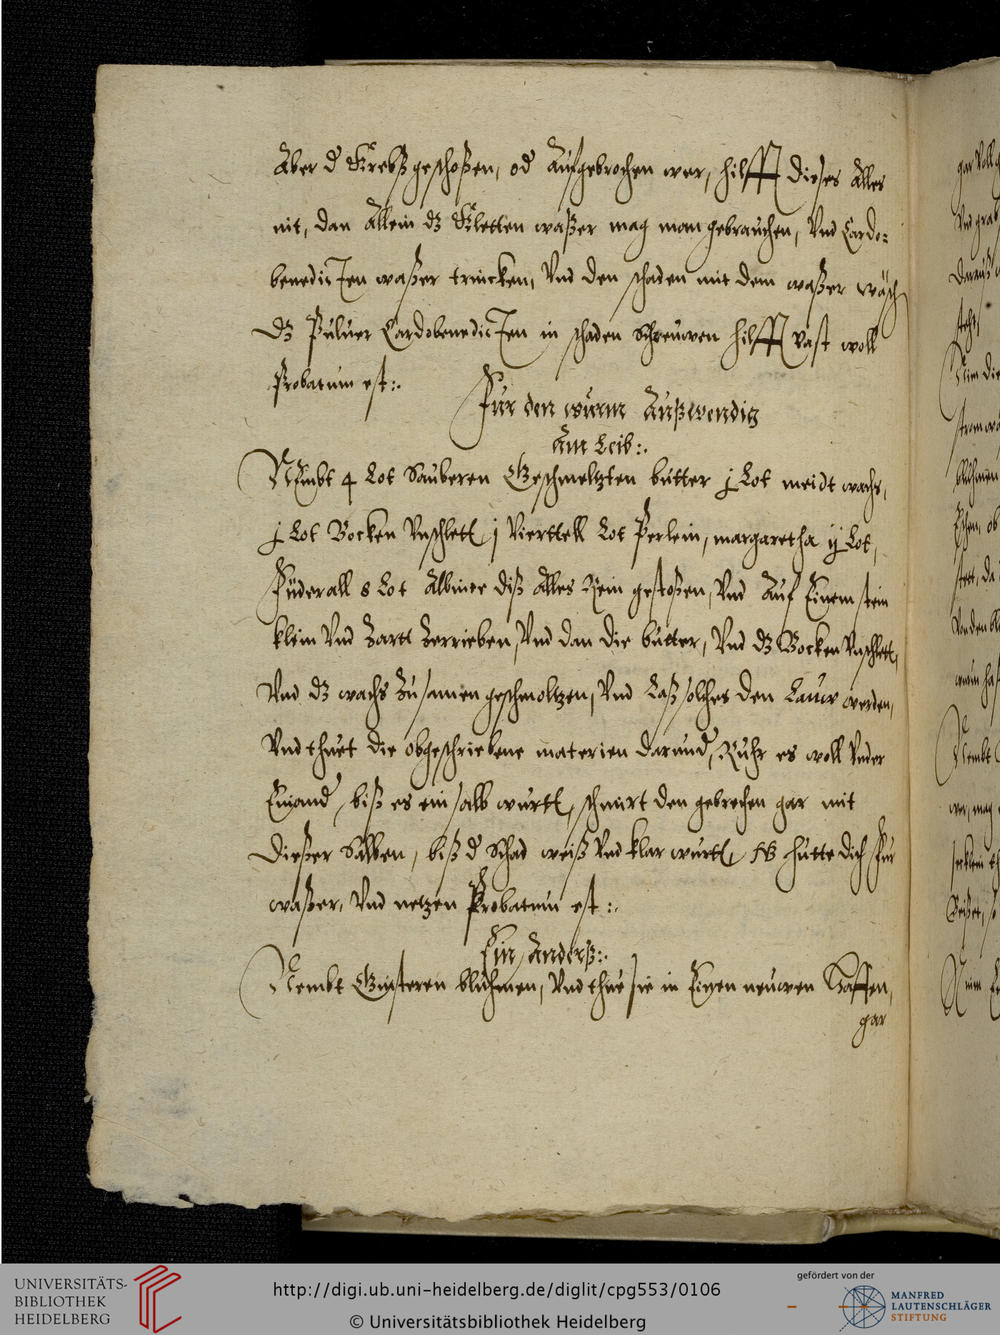 Aber d' Krebß geschoßen, od' Außgebrochen wer, hilfft dießes Alles
nit, dan Allein dz Kletten waßer mag man gebrauchen, Vnd Cardo-
benedicten waßer trincken, Vnd den schaden mit dem waßer wäsch
dz Puluer Cardobenedicten in schaden Schreuwen hilfft vast woll
Probatum est:.
Fur den wurm Außwendig
Am Leib:.
Nembt 4 Lot Sauberen Geschmeltzten butter j Lot meidt wachs,
j Lot Bocken Vnschlett j Vierttell Lot Perlein, margaretha ij Lot,
8 Lot diß Alles Rein gestoßen, Vnd Auf Einem stein
klein Vnd Zartt Zerrieben, Vnd dan die butter, Vnd dz Bocken Vnschlett,
Vnd dz wachs Zusamen geschmoltzen, Vnd Laß solches den Lauw werden,
Vnd thuet die obgeschriebene materien darund', Ruhr es woll Vnder
Einand', biß es ein salb wurtt, schmirt den gebrechen gar mit
dießer Salben, biß d' Schad weiß Vnd klar wurtt, NB hütte dich fur
waßer, Vnd netzen Probatum est:.
Ein Anderß:.
Nembt Ginsteren bluhmen, Vnd thue sie in Einen neuwen Haffen,
gar
UNIVERSITÄTS-
BIBLIOTHEK
HEIDELBERG
http://digi.ub.uni-heidelberg.de/diglit/cpg553/0106
© Universitätsbibliothek Heidelberg
gefördert von der
MANFRED
LAUTENSCHLÄGER
STIFTUNG